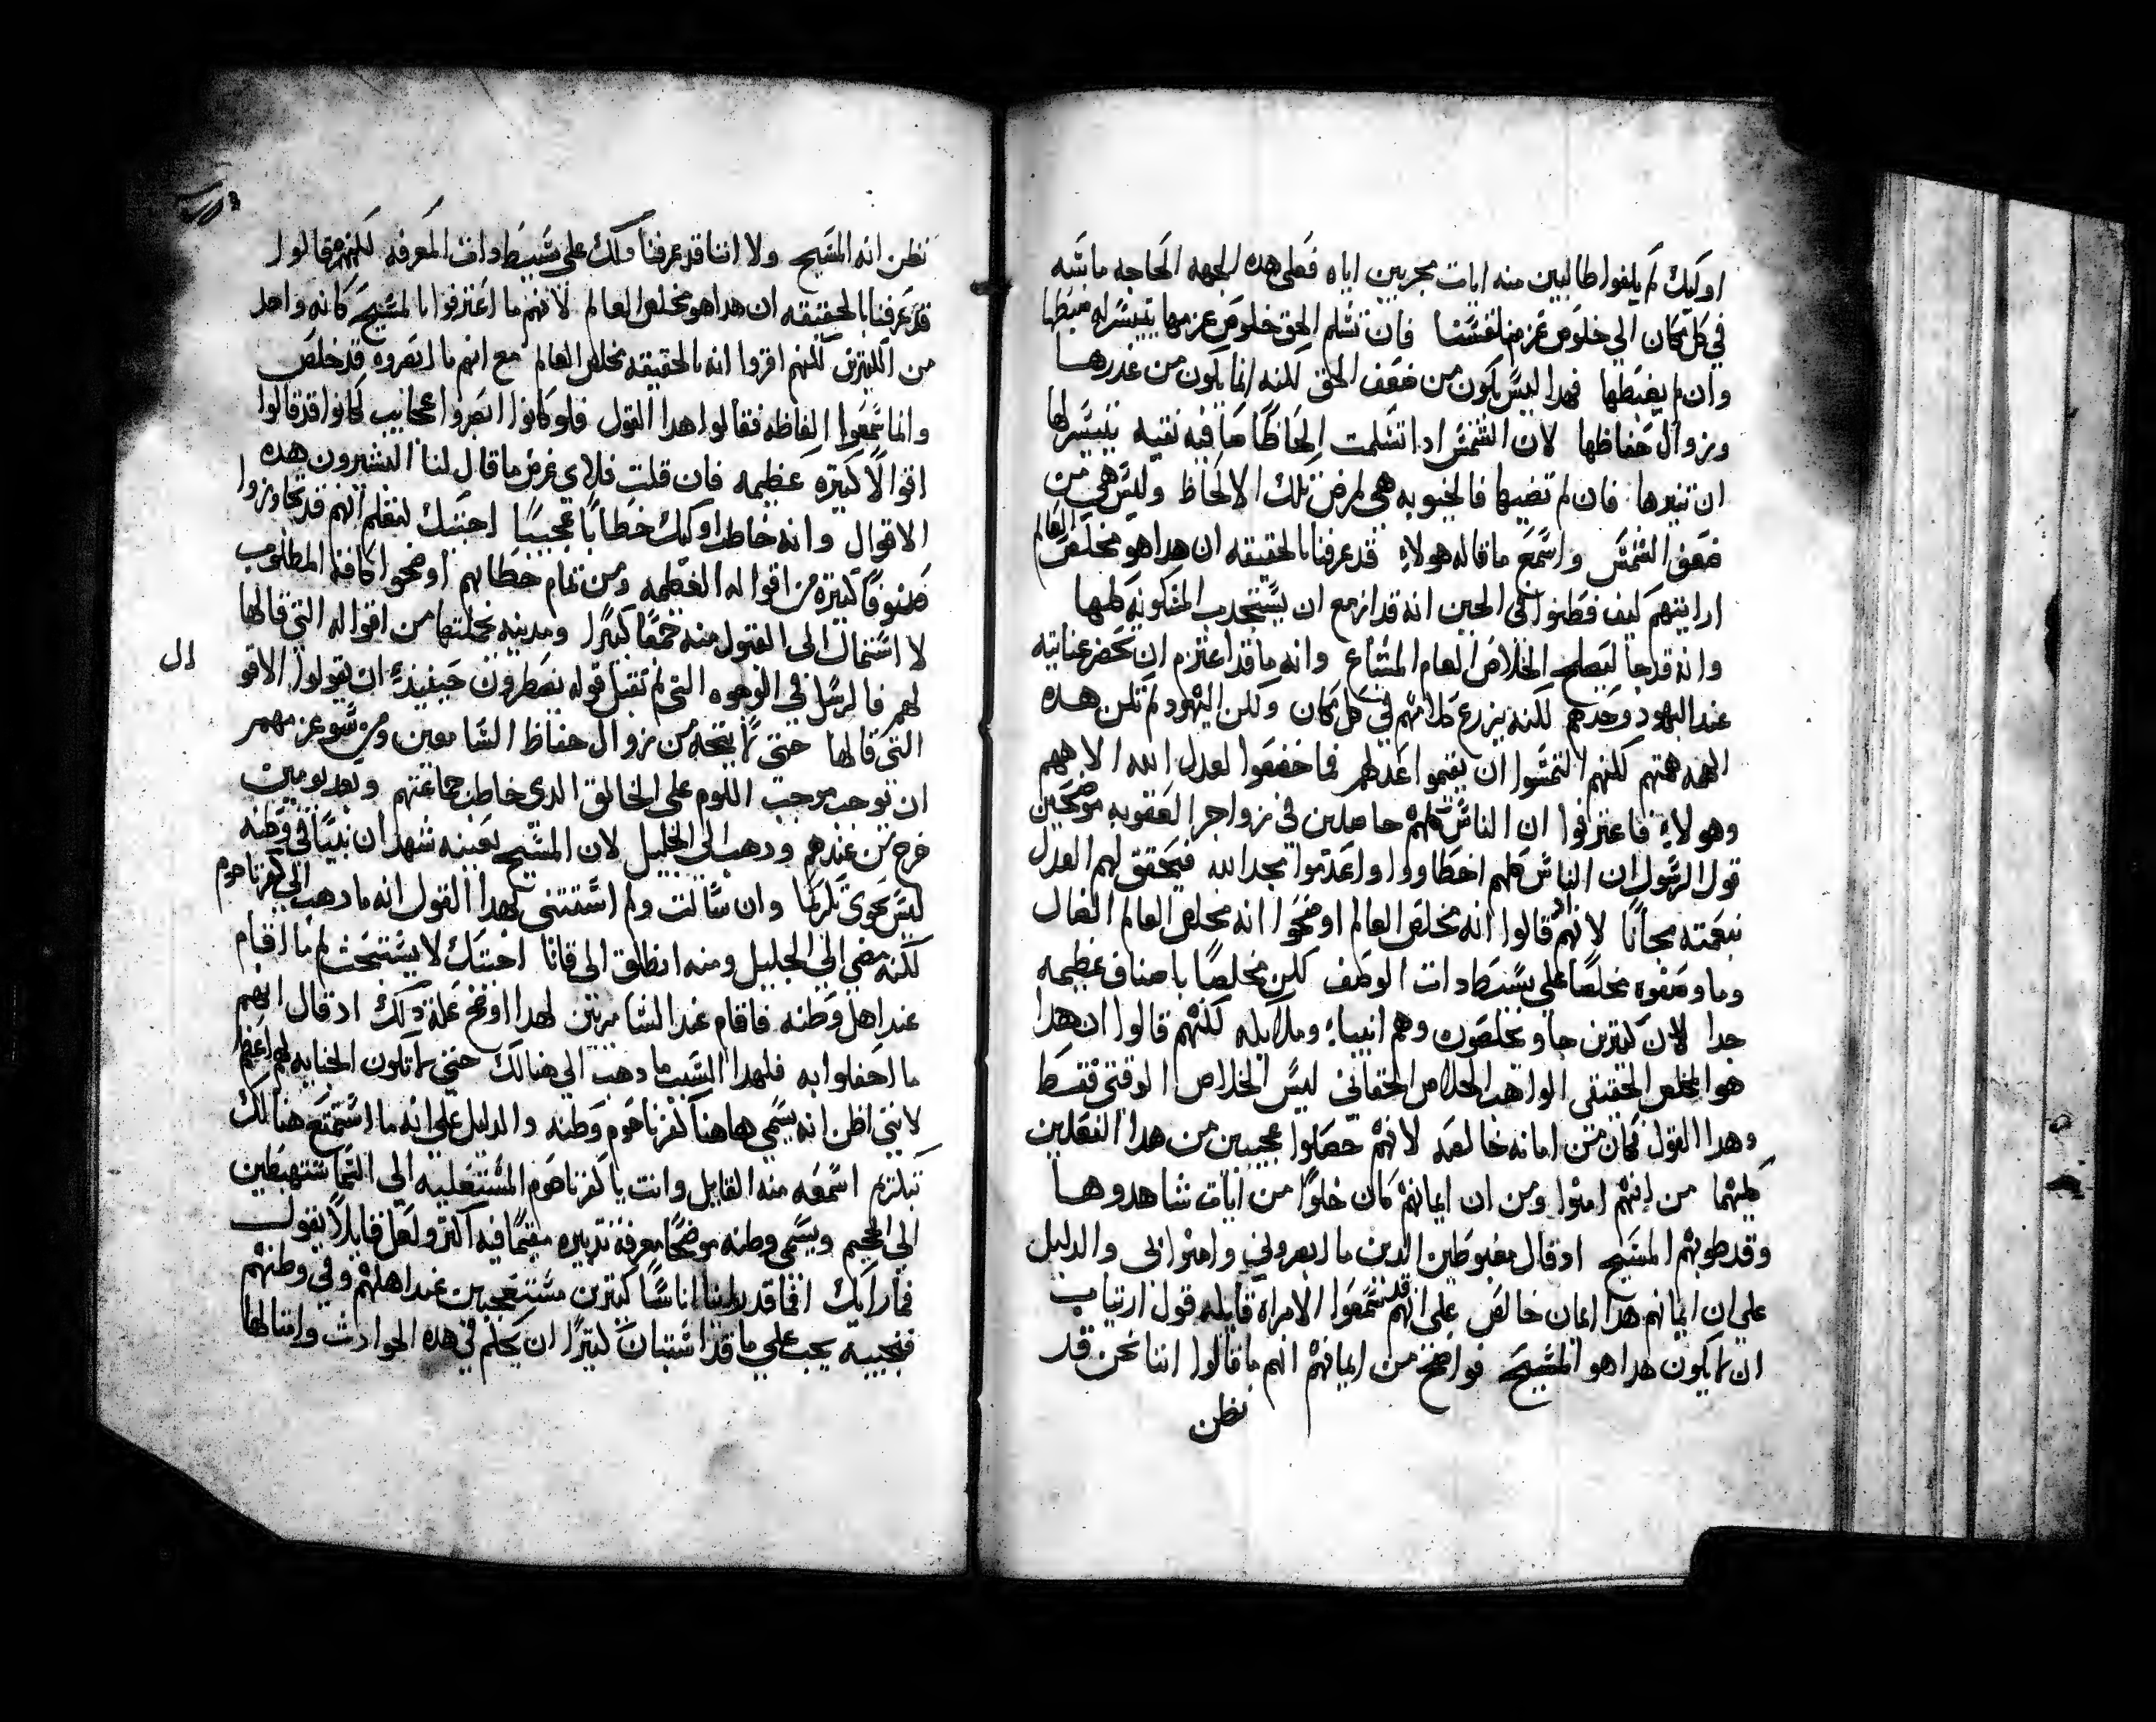 اوليك لم يلفوا طالبين منه ايات مجربين اياه فعلى هده الجهه الحاجه ماسه
في كل مكان الي خلوص عزمنا فان تسلم الحق خلوص عزمها يتيسر له ضبطها
وان لم يضبطها فهدا ليس يكون من ضعف الحق لكنه انما يكون من غدرها
وزوال حفاظها لان الشمش ادا تسلمت الحاظا صافيه نقيه يتيسر لها
ان تنيرها فان لم تضيها فالخيوبه هي لمرض تلك الالحاظ وليس هي من
ضعف الشمش واسمع ما قاله هولاء قد عرفنا بالحقيقه ان هدا هو مخلص العالم
ارايتهم كيف فطنوا في الحين انه قد ازمع ان يستجدب المسكونه كلها
وانه قد جا ليصلح الخلاص العام المشاع وانه ما قد اعتزم ان يحصر عنايته
عند اليهود وحدهم لكنه يزرع كلامهم في كل مكان ولكن اليهود لم تكن هده
الهمه همتهم لكنهم التمسوا ان يقيموا عدلهم فما خضعوا لعدل الله الاههم
وهولاء فاعترفوا ان الناس كلهم حاصلين في زواجر العقوبه موضحين
قول الرسول ان الناس كلهم اخطاووا واعدموا مجد الله فيحقق لهم العدل
بنعمته مجانا لانهم اد قالوا انه مخلص العالم اوضحوا انه مخلص العالم الضال
وما وصفوه مخلصا على بسيط دات الوصف لكن مخلصا باصناف عظيمه
جدا لان كثيرين جاو يخلصون وهم انبياء وملايكه لكنهم قالوا ان هدا
هو المخلص الحقيقي الواهب الخلاص الحقاني ليس الخلاص الوقتي فقسط
وهدا القول كان من امانه خالصه لانهم حصلوا عجيبين من هدا النعتين
كليهما من انهم امنوا ومن ان ايمانهم كان خلوا من ايات شاهدوها
وقد طوبهم المسيح اد قال مغبوطين الدين ما ابصروني وامنوا بي والدليل
على ان ايمانهم هدا ايمان خالص على انهم قد سمعوا الامراه قايله قول ارتياب
ان لما يكون هدا هو المسيح فواضح من ايمانهم انهم ما قالوا اننا نحن قد
نظن
نظن انه المسيح ولا اننا قد عرفنا دلك على بسيط دات المعرفه لكنهم قالوا
قد عرفنا بالحقيقه ان هدا هو مخلص العالم لانهم ما اعترفوا بالمسيح كانه واحد
من الكثيرين لكنهم اقروا انه بالحقيقه مخلص العالم مع انهم ما ابصروه قد خلص
وانما سمعوا الفاظه فقالوا هدا القول فلو كانوا ابصروا عجايب كانوا قد قالوا
اقوالا كثيره عظيمه فان قلت فلاي غرض ما قال لنا البشيرون هده
الاقوال وانه خاطب اوليك خطابا عجيبا اجبتك لتعلم انهم قد تجاوزوا
صنوفا كثيره من اقواله العظيمه ومن تمام خطابهم اوضحوا كافة المطلوب
لاستمال الى القبول منه جمعا كبيرا ومدينه بجملتها من اقواله التي قالها
لهم فالرسل في الوجوه التي لم تقبل قوله يضطرون حينيد ان يقولوا الاقو
ال
التي قالها حتى لما يتجه من زوال حفاظ السامعين ومن سو عزمهم
ان توجد موجب اللوم على الخالق الدي خاطب جماعتهم وبعد يومين
خرج من عندهم ودهب الى الجليل لان المسيح بعينه شهد ان نبيا في وطنه
ليس يحوي تكرمًا وان سالت ولم استتني بهدا القول انه ما دهب الى كفرناحوم
لكنه مضي الي الجليل ومنه انطلق الى قانا اجبتك لا يستبحث لم ما اقام
عند اهل وطنه فاقام عند السامريين لهدا اوضح علة دلك اد قال انهم
ما احفلوا به فلهدا السبب ما دهب الي هنالك حتي لما تكون الجنايه لهم اعظم
لانني اظن انه يسمي هاهنا كفرناحوم وطنه والدليل علي انه ما استمتع هنالك
بتكرم اسمعه منه القايل وانت يا كفرناحوم المستعليه الي السما ستهبطين
الي الجحيم ويسمي وطنه موضحا معرفة تدبيره مقيما فيه اكتر ولعل قايلا يقول
فما رايك افما قد راينا اناسا كثيرين مستعجبين عند اهلهم وفي وطنهم
فنجيبه يجب علي ما قد استبان كثيرا ان يحكم في هده الحوادث وامثالها